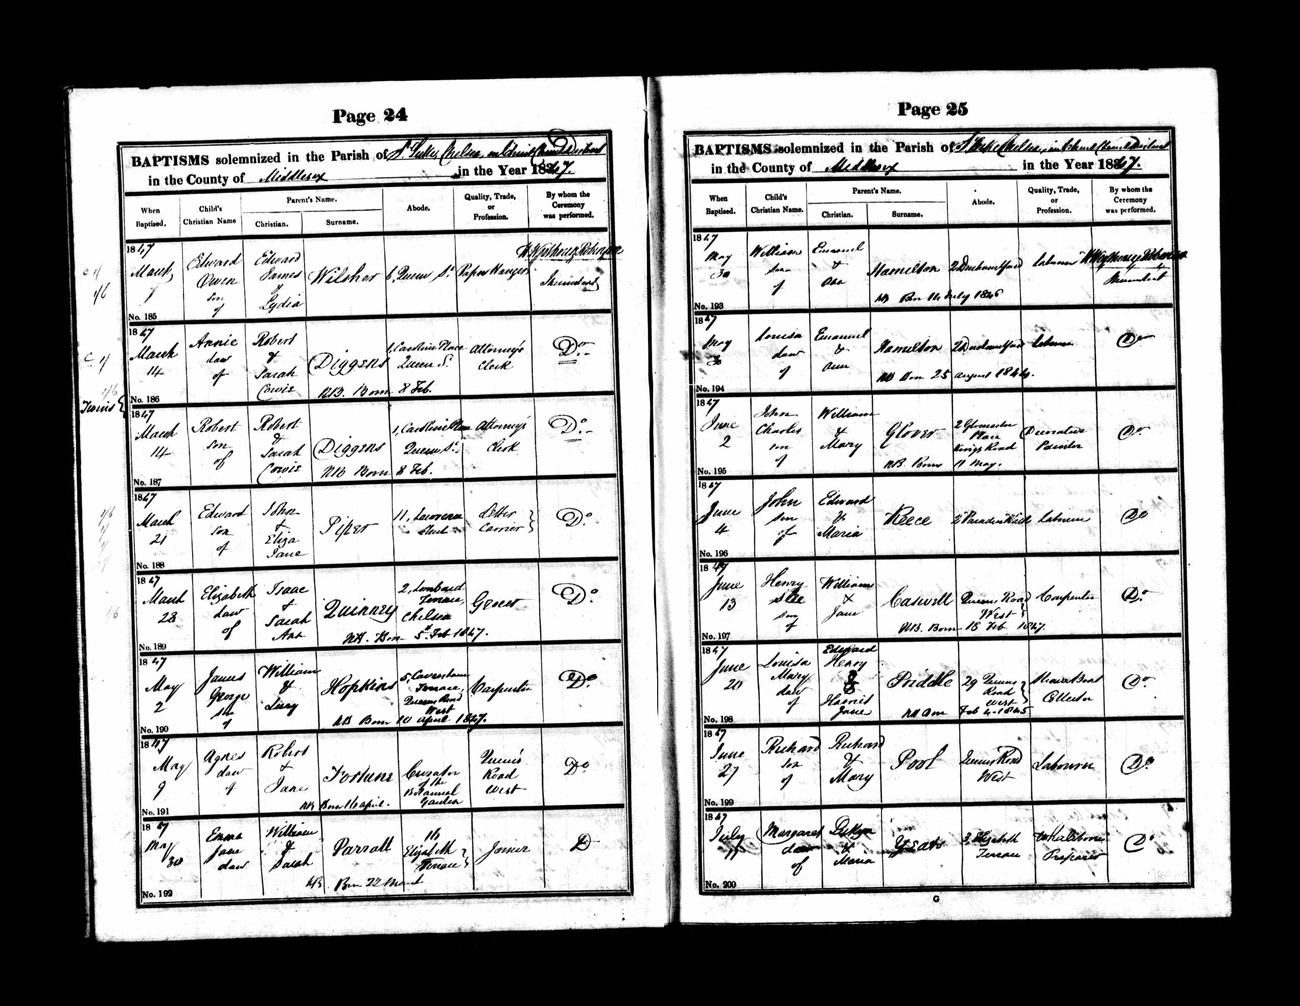 Page 24
BAPTISMS solemnized in the Parish of St Lukes Chelsea, in Christ Church District
in the County of Middlesex in the Year 1847.
When Baptised.
Child's Christian Name
Parent's Name.
Christian.
Surname.
Abode.
Quality, Trade, or Profession.
By whom the Ceremony was performed.
1847
March
7
Edward
Owen
son
of
Edward
James
&
Lydia
Wilsher
6 Queen St
Paper Hanger
Incumbent
No. 185
1847
March
14
Annie
daw
of
Robert
&
Sarah
Diggens
NB. Born 8 Feb.
1, Caroline Place
Queen St.
Attorney's
Clerk
Do
No. 186
Twins
1847
March
14
Robert
son
of
Robert
&
Sarah
Diggens
NB Born 8 Feb.
1, Caroline Place
Queen St.
Attorney's
Clerk
Do
No. 187
1847
March
21
Edward
son
of
John
&
Eliza
Jane
Piper
11, Lawrence
Street
Letter
Carrier
Do
No. 188
1847
March
28
Elizabeth
daw
of
Isaac
&
Sarah
Ann
Quinney
NB. Born 5th Feb 1847.
2, Lombard
Terrace
Chelsea
Grocer
Do
No. 189
1847
May
2
James
George
son
of
William
&
Lucy
Hopkins
NB Born 10 April 1847.
5, Caversham
Terrace,
Queens Road
West
Carpenter
Do
No. 190
1847
May
9
Agnes
daw
of
Robert
&
Jane
Fortune
NB Born 16 April.
Curator
of the
Botanical
Garden
Queen's
Road
West
Do
No. 191
1847
May
30
Emma
Jane
daw
William
&
Sarah
Parratt
NB Born 22 March
16
Elizabeth
Terrace
Joiner
D
No. 192
Page 25
BAPTISMS solemnized in the Parish of St Lukes Chelsea, in Christ Church District
in the County of Middlesex in the Year 1847.
When Baptised.
Child's Christian Name.
Parent's Name.
Christian.
Surname.
Abode.
Quality, Trade, or Profession.
By whom the Ceremony was performed.
1847
May
30
William
son
of
Emanuel
&
Ann
Hamilton
NB Born 14 July 1846
Labourer
Incumbent
No. 193
1847
May
30
Louisa
daw
of
Emanuel
&
Ann
Hamilton
NB Born 25 August 1844.
Labourer
Do
No. 194
1847
June
2
John
Charles
son
of
William
&
Mary
Glover
NB. Born 11 May.
2 Gloucester
Place
Kings Road
Decorative
Painter
Do
No. 195
1847
June
4
John
son
of
Edward
&
Maria
Reece
2 Paradise Walk
Labourer
Do
No. 196
1847
June
13
Henry
son
of
William
&
Jane
Caswell
NB. Born 18 Feb 1847.
Queens Road
West
Carpenter
Do
No. 197
1847
June
20
Louisa
Mary
daw
of
Edward
Henry
&
Harriet
Jane
Priddle
NB Born Feb 4. 1845
29 Queens
Road
West
Collector
Do
No. 198
1847
June
27
Richard
son
of
Richard
&
Mary
Pool
Queens Road
West
Labourer
Do
No. 199
1847
July
11
Margaret
daw
of
&
Maria
3, Elizabeth
Terrace
Whalebone
Preparer
Do
No. 200
G